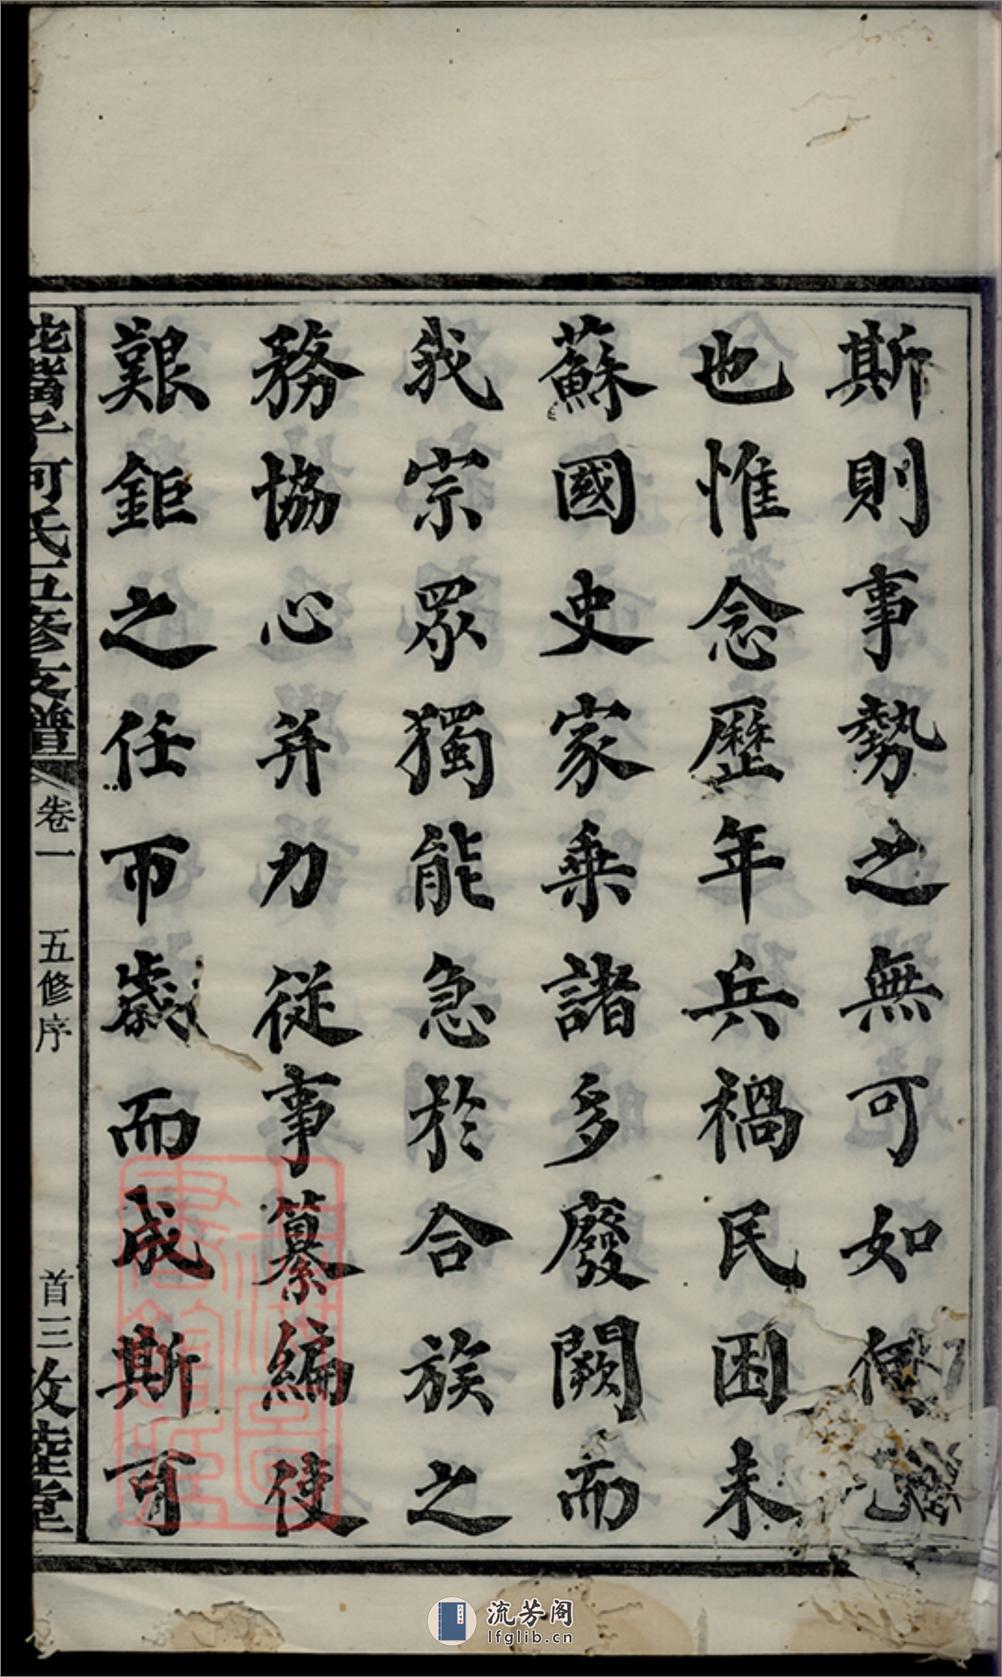 斯則事勢之無可如何
也惟念歷年兵禍民困未
蘇國史家乘諸多廢闕而
我宗眾獨能急於合族之
務協心并力從事纂編使
艱鉅之任帀歲而成斯可
河氏五修支譜
卷一
五修序
首三
敦睦堂
流芳阁
lfglib.cn